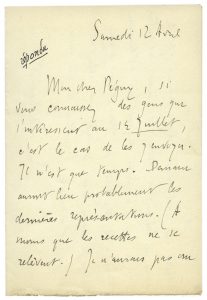 Samedi 12 Avril
répondu
Mon cher Péguy, si
vous connaissez des gens que
intéressent au 14 Juillet,
c'est le cas de les y envoyer.
Il n'est que temps. Danton
aurait bien probablement les
dernières représentations. (À
moins que les recettes ne se
relèvent.) Je n'aurais pas cru